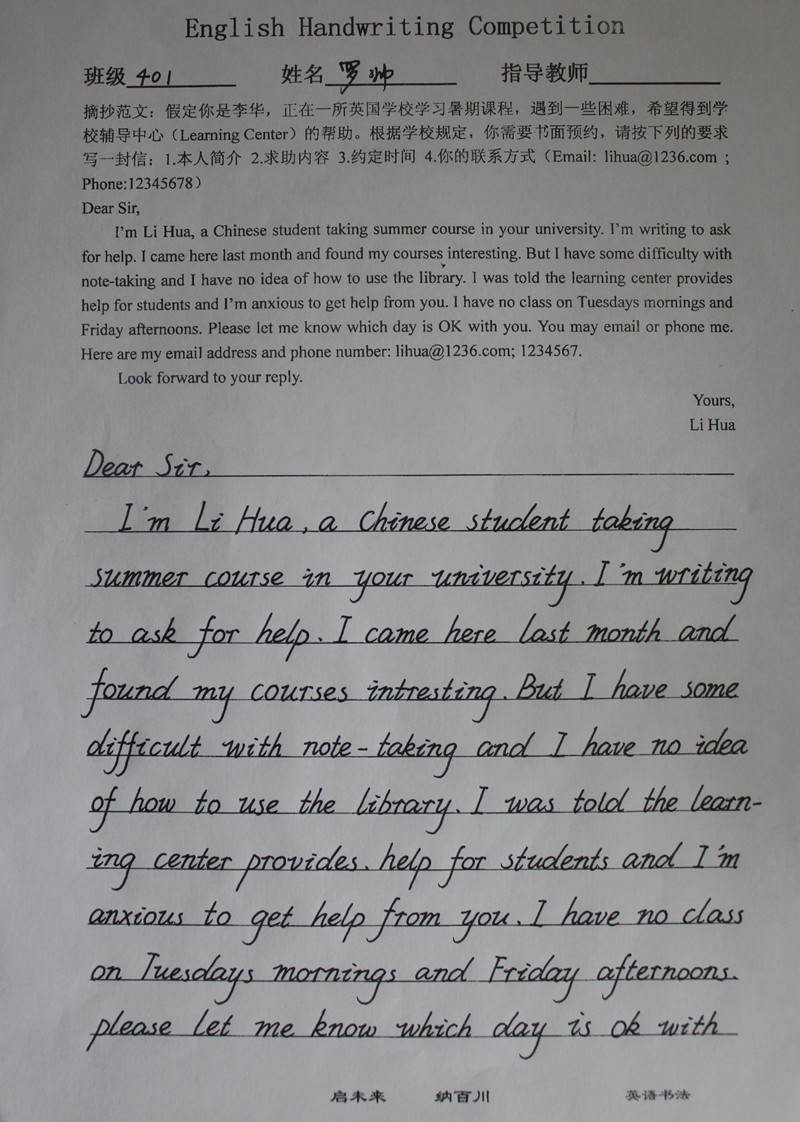 English Handwriting Competition
班级 401 姓名 罗帅 指导教师
摘抄范文：假定你是李华，正在一所英国学校学习暑期课程，遇到一些困难，希望得到学
校辅导中心（Learning Center）的帮助。根据学校规定，你需要书面预约，请按下列的要求
写一封信：1.本人简介 2.求助内容 3.约定时间 4.你的联系方式（Email: lihua@1236.com ;
Phone:12345678）
Dear Sir,
I'm Li Hua, a Chinese student taking summer course in your university. I'm writing to ask
for help. I came here last month and found my courses interesting. But I have some difficulty with
note-taking and I have no idea of how to use the library. I was told the learning center provides
help for students and I'm anxious to get help from you. I have no class on Tuesdays mornings and
Friday afternoons. Please let me know which day is OK with you. You may email or phone me.
Here are my email address and phone number: lihua@1236.com; 1234567.
Look forward to your reply.
Yours,
Li Hua
Dear Sir,
I'm Li Hua, a Chinese student taking
summer course in your university. I'm writing
to ask for help. I came here last month and
found my courses intresting. But I have some
difficult with note-taking and I have no idea
of how to use the library. I was told the learn-
ing center provides. help for students and I'm
anxious to get help from you. I have no class
on Tuesdays mornings and Friday afternoons.
please let me know which day is ok with
启未来 纳百川 英语书法